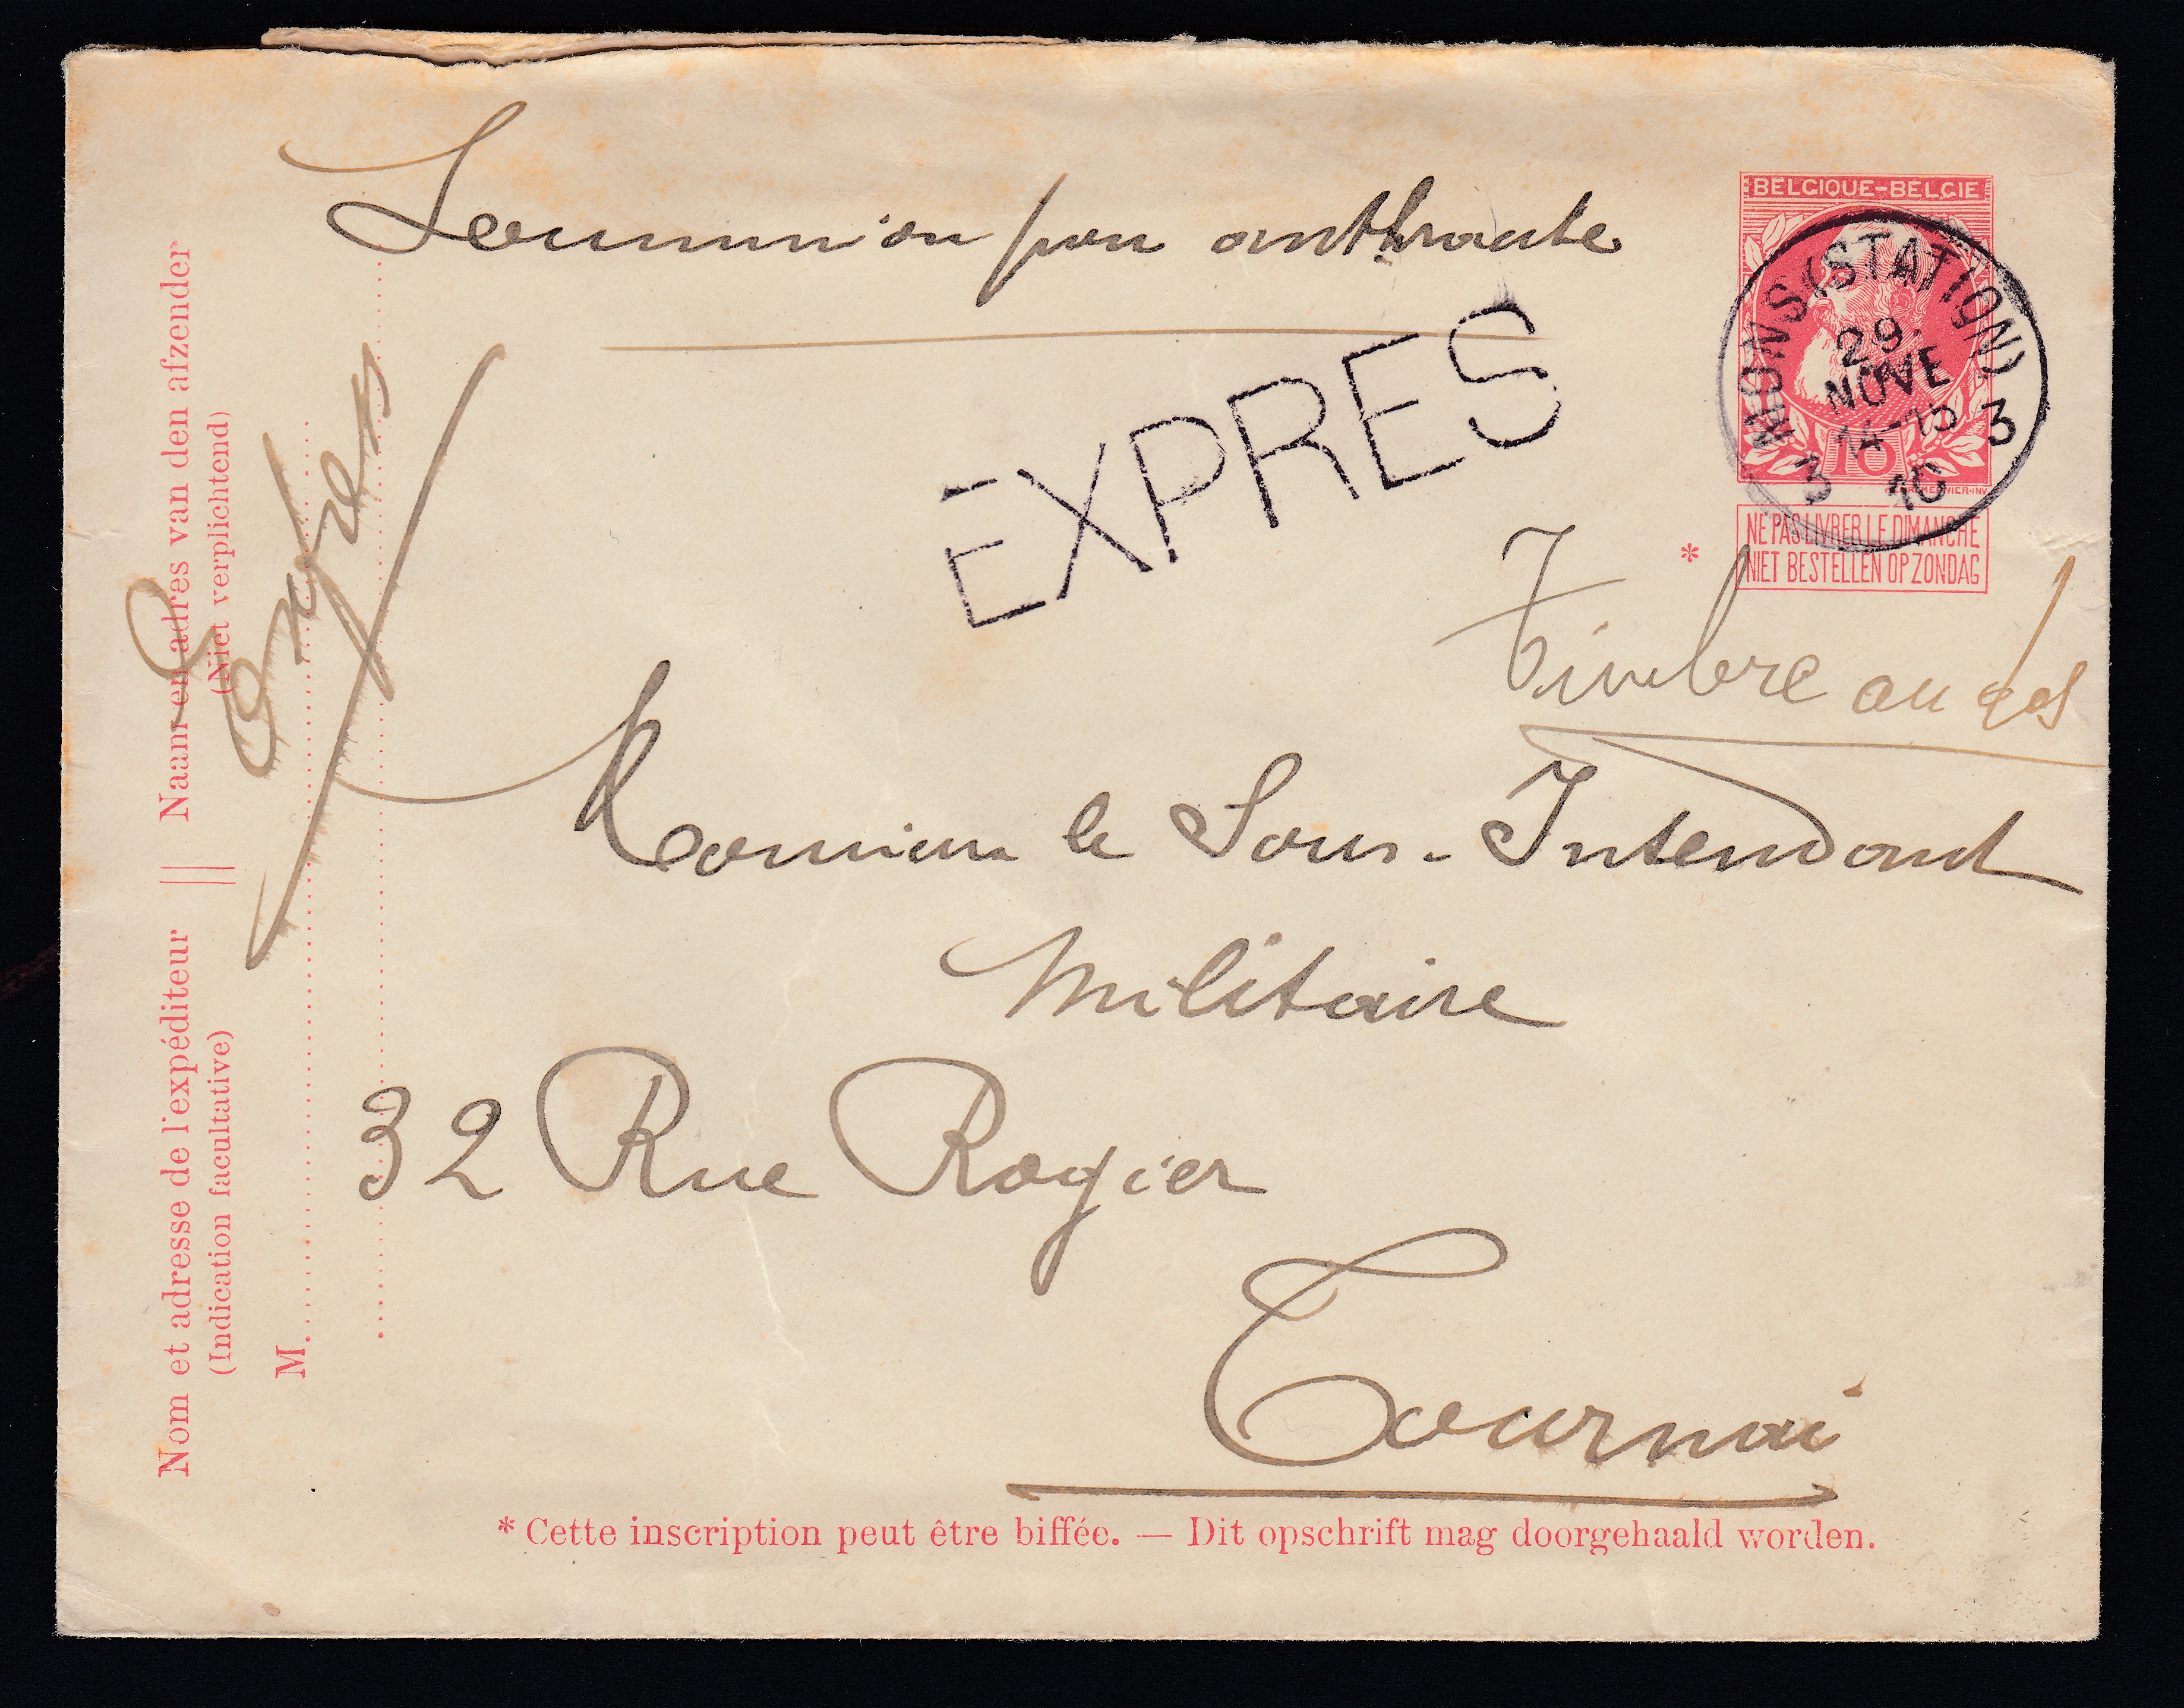 Soumission pour anthracite
BELGIQUE-BELGIE
MONS (STATION)
29
NOVE
14-15
3 10 3
10
NE PAS LIVRER LE DIMANCHE
NIET BESTELLEN OP ZONDAG
*
EXPRES
Timbre au dos
Monsieur le Sous-Intendant
Militaire
32 Rue Rogier
Tournai
* Cette inscription peut être biffée. — Dit opschrift mag doorgehaald worden.
Nom et adresse de l'expéditeur || Naam en adres van den afzender
(Indication facultative) (Niet verplichtend)
M
Exprès